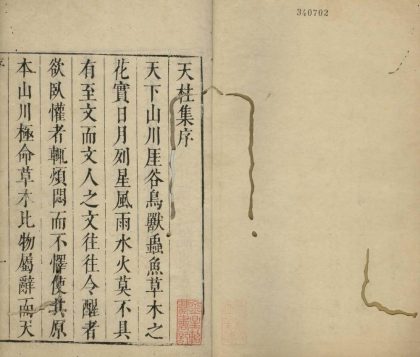 340702
天柱集序
天下山川厓谷鳥獸蟲魚草木之
花實日月列星風雨水火莫不具
有至文而文人之文往往令醒者
欲臥懽者輒煩悶而不懌使其原
本山川極命草木比物屬辭而天
序